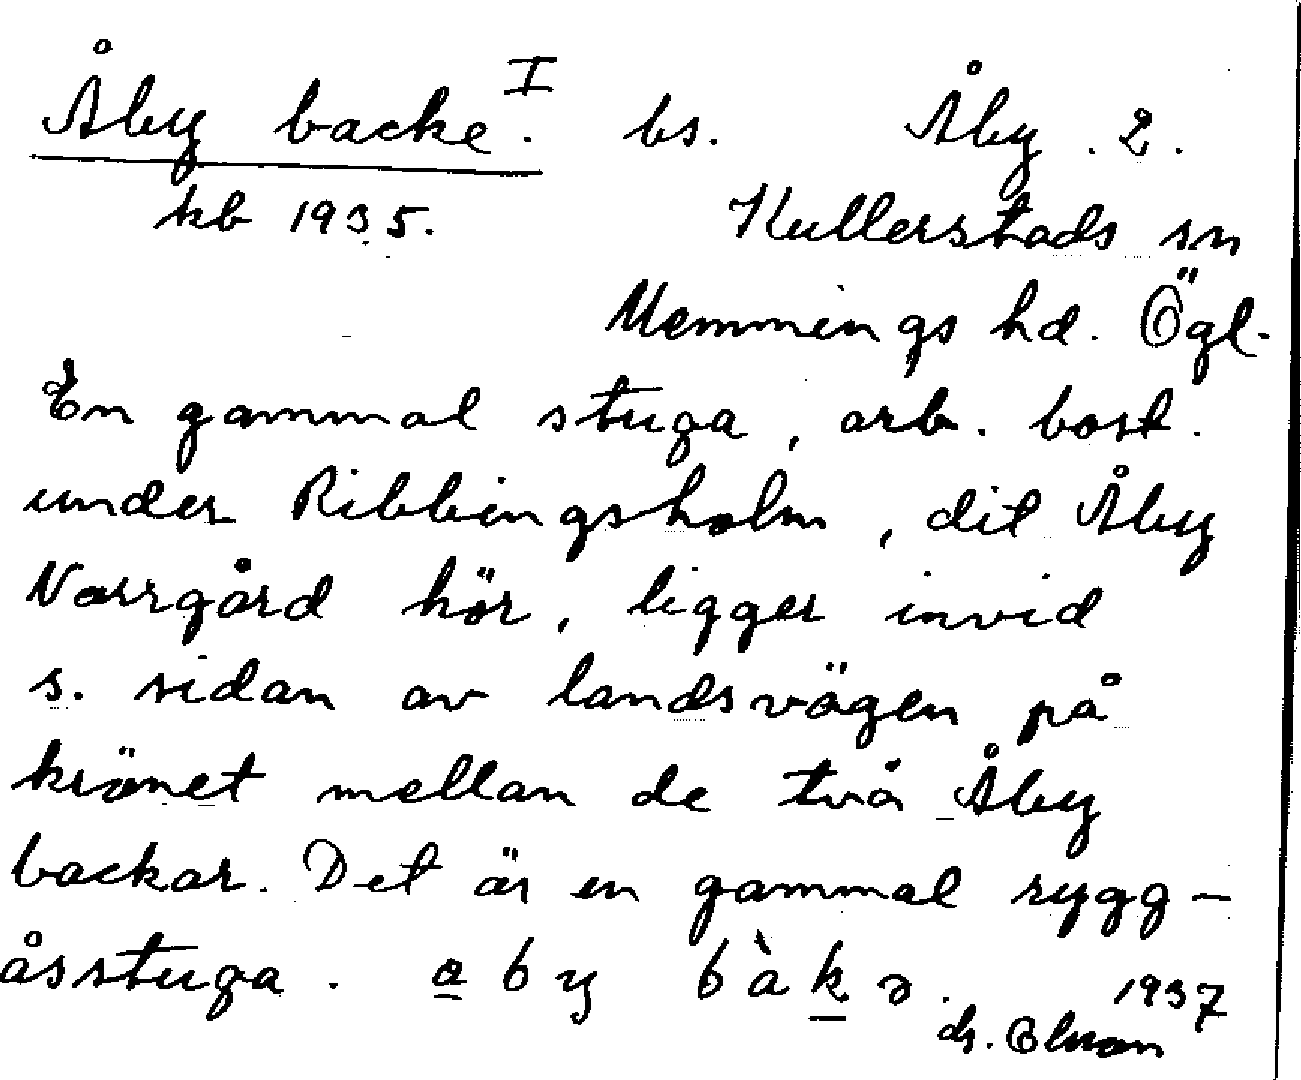 Åby backe. I bs. Åby. 2.
kb 1935. Kullerstads sn
Memmings hd. Ögl.
En gammal stuga, arb. bost.
under Ribbingsholm, dit Åby
Norrgård hör, ligger invid
s. sidan av landsvägen på
krönet mellan de två Åby
backar. Det är en gammal rygg-
åsstuga. a b y b à k ə. 1937